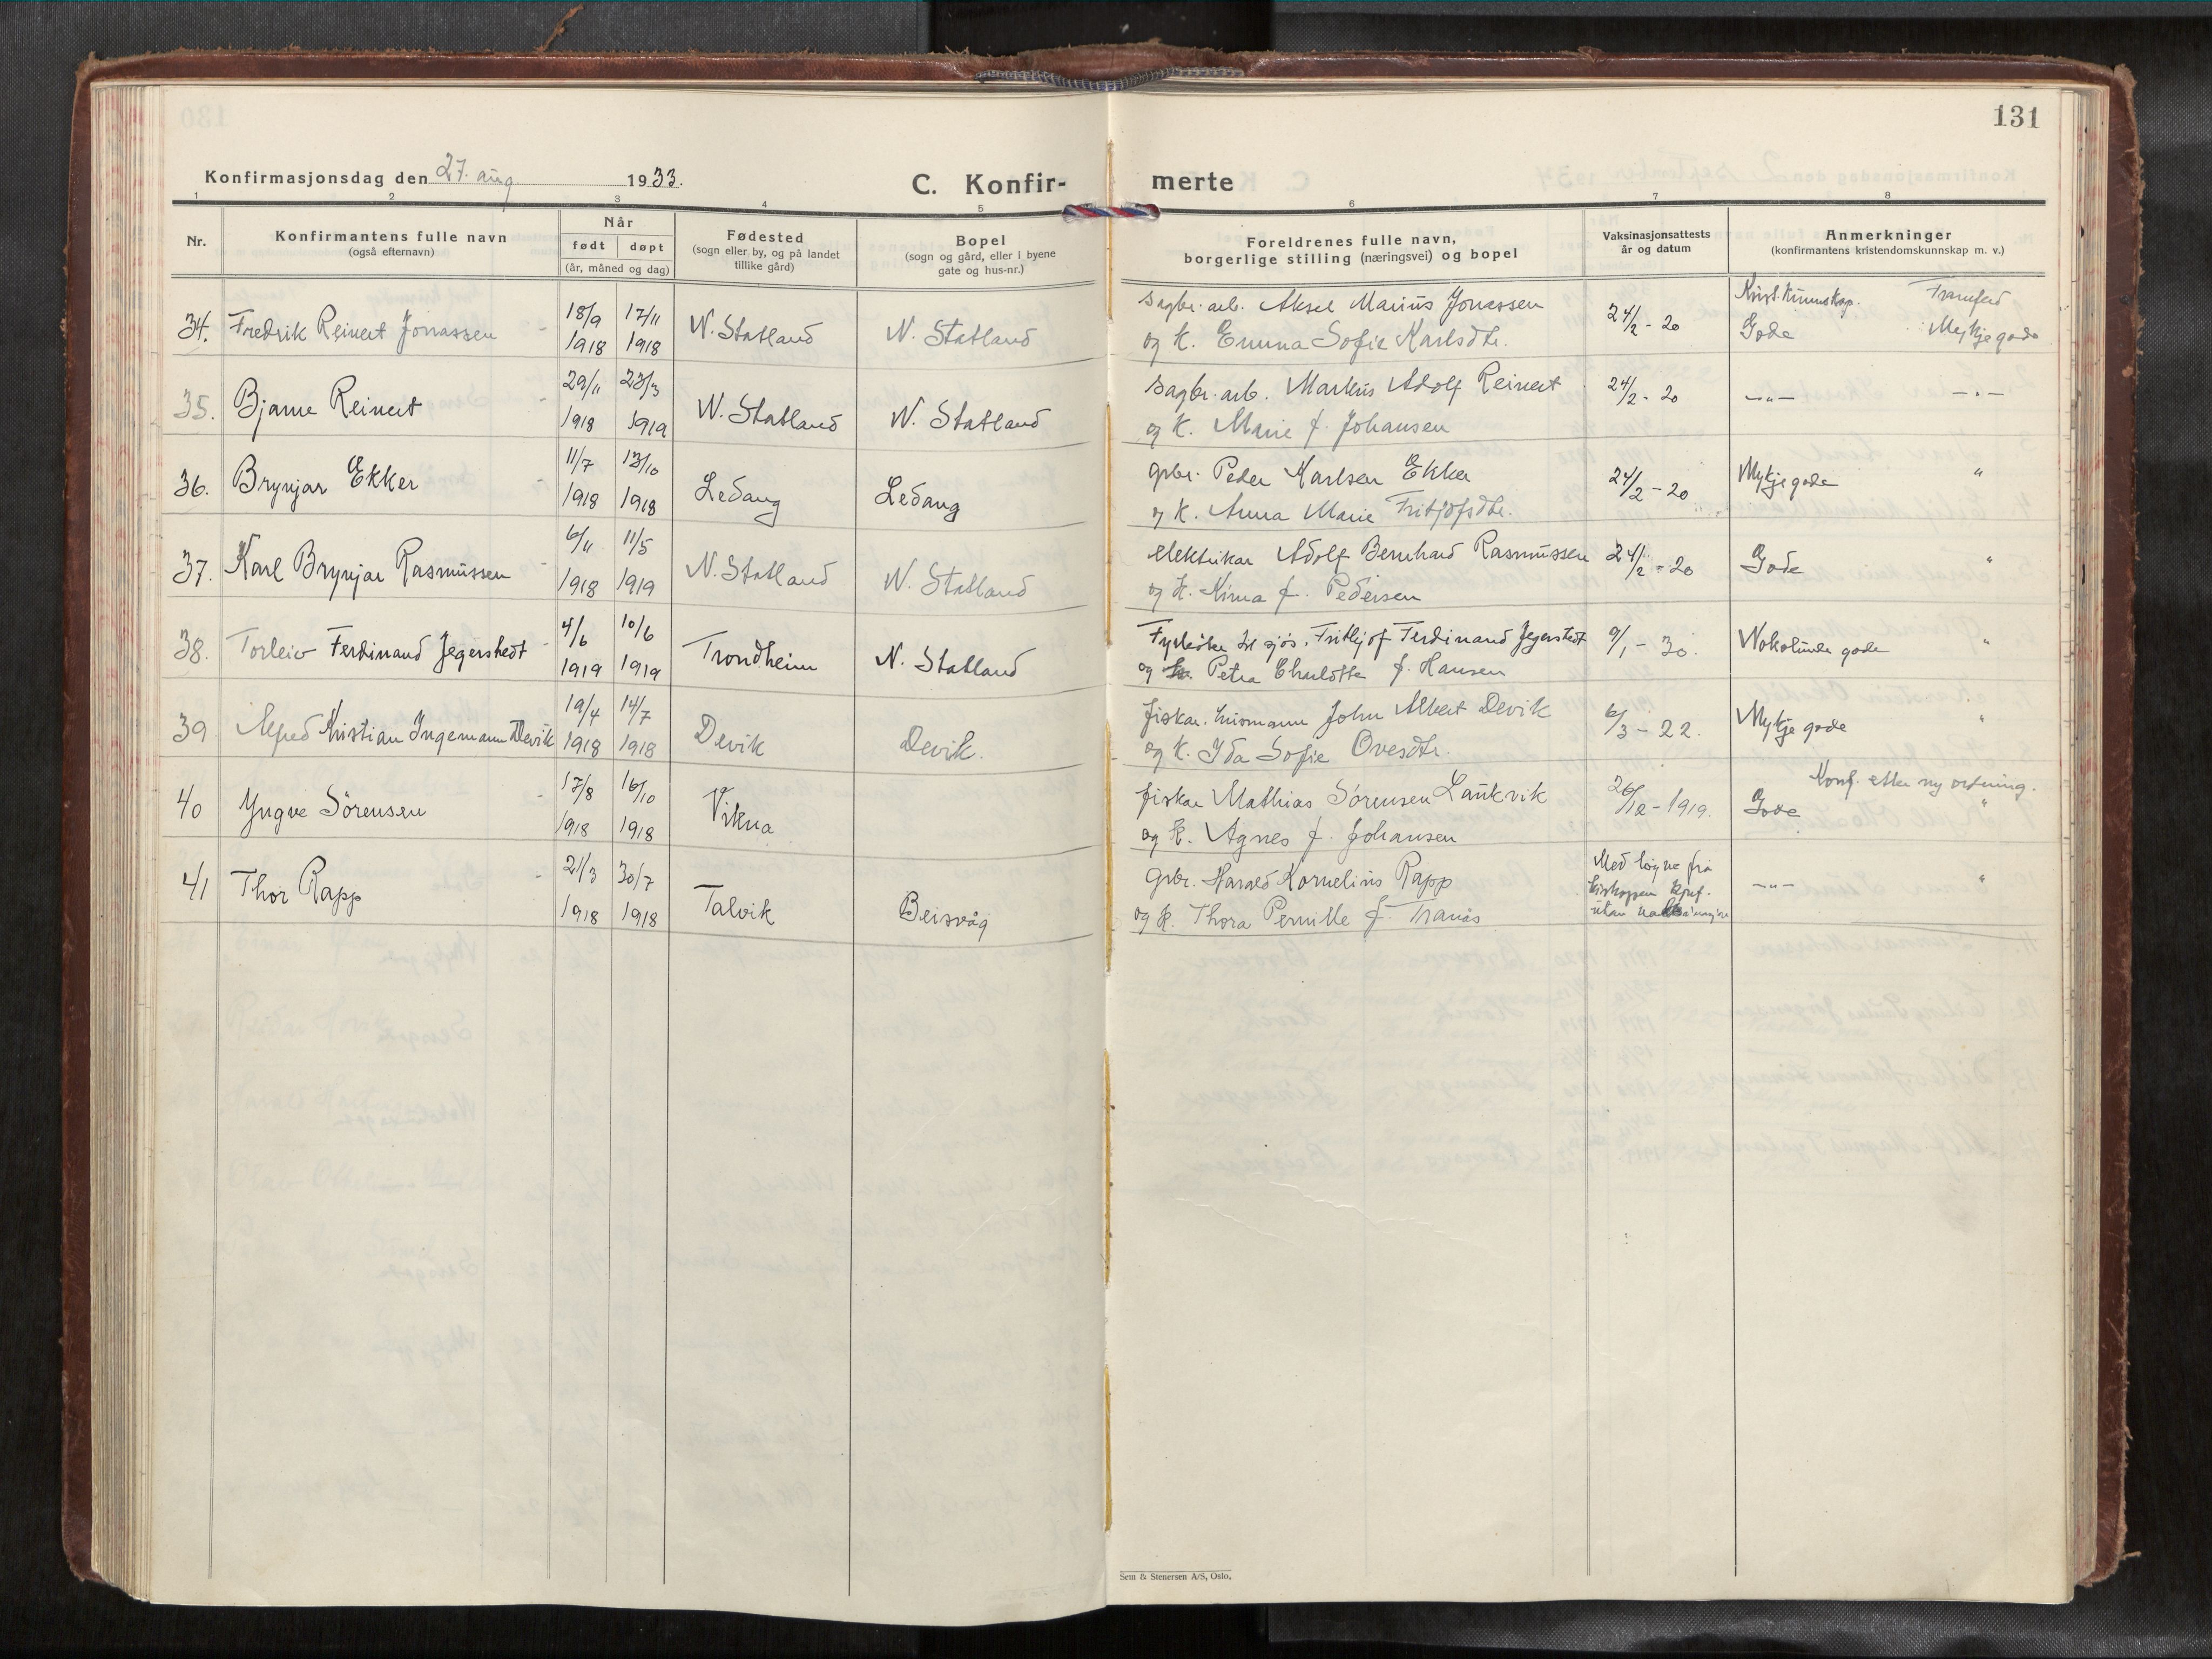 131
Konfirmasjonsdag den 27. aug 1933.
C. Konfir-
merte
1 2 3 4 5 6 7 8
Nr.
Konfirmantens fulle navn
(også efternavn)
Når
født døpt
(år, måned og dag)
Fødested
(sogn eller by, og på landet
tillike gård)
Bopel
(sogn og gård, eller i byene
gate og hus-nr.)
Foreldrenes fulle navn,
borgerlige stilling (næringsvei) og bopel
Vaksinasjonsattests
år og datum
Anmerkninger
(konfirmantens kristendomskunnskap m. v.)
Krist. kunnskap. Framferd
34. Fredrik Reinert Jonassen 18/9 1918 17/11 1918 N. Statland N. Statland
Sagbr. arb. Aksel Marius Jonassen
og k. Emma Sofie Karlsdtr. 24/2 - 20 Gode Mykje gode
35. Bjarne Reinert 29/11 1918 23/3 1919 N. Statland N. Statland
Sagbr. arb. Markus Adolf Reinert
og k. Marie f. Johansen 24/2 - 20 —„— —„—
36. Brynjar Ekker 11/7 1918 13/10 1918 Ledang Ledang
Grbr. Peder Karlsen Ekker
og k. Anna Marie Fritjofsdtr. 24/2 - 20 Mykje gode "
37. Karl Brynjar Rasmussen 6/11 1918 11/5 1919 N. Statland N. Statland
elektrikar Adolf Bernhard Rasmussen
og k. f. Pedersen 24/2 - 20 Gode "
38. Torleiv Ferdinand Jegerstedt 4/6 1919 10/6 1919 Trondheim N. Statland
Fyrbøter til sjøs. Frithjof Ferdinand Jegerstedt
og Petra Charlotte f. Hansen 9/1 - 30. Nokolunde gode "
39 Alfred Kristian Ingemann Devik 19/4 1918 14/7 1918 Devik Devik.
fiskar. husmann John Albert Devik
og k. Ida Sofie Ovesdtr. 6/3 - 22. Mykje gode "
40 Yngve Sörensen 17/8 1918 16/10 1918 Vikna
fiskar Mathias Sörensen Laukvik
og k. Agnes f. Johansen 26/12 - 1919. Gode "
Konf. etter ny ordning.
41 Thor Rapp 21/3 1918 30/7 1918 Talvik Beisvåg
Grbr. Harald Kornelius Rapp
og k. Thora Pernille f. Tranås
Med löyve frå
biskopen
utan —„— "
Sem & Stenersen A/S, Oslo.